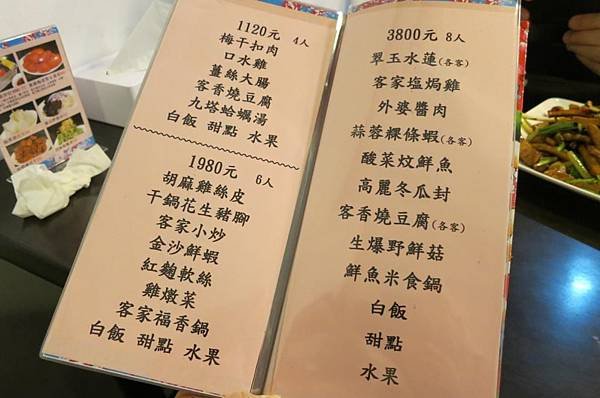 1120元 4人
梅干扣肉
口水雞
薑絲大腸
客香燒豆腐
九塔蛤蠣湯
白飯 甜點 水果
1980元 6人
胡麻雞絲皮
干鍋花生豬腳
客家小炒
金沙鮮蝦
紅麴軟絲
雞燉菜
客家福香鍋
白飯 甜點 水果
3800元 8人
翠玉水蓮(各客)
客家塩焗雞
外婆醬肉
蒜蓉粿條蝦(各客)
酸菜炆鮮魚
高麗冬瓜封
客香燒豆腐(各客)
生爆野鮮菇
鮮魚米食鍋
白飯
甜點
水果